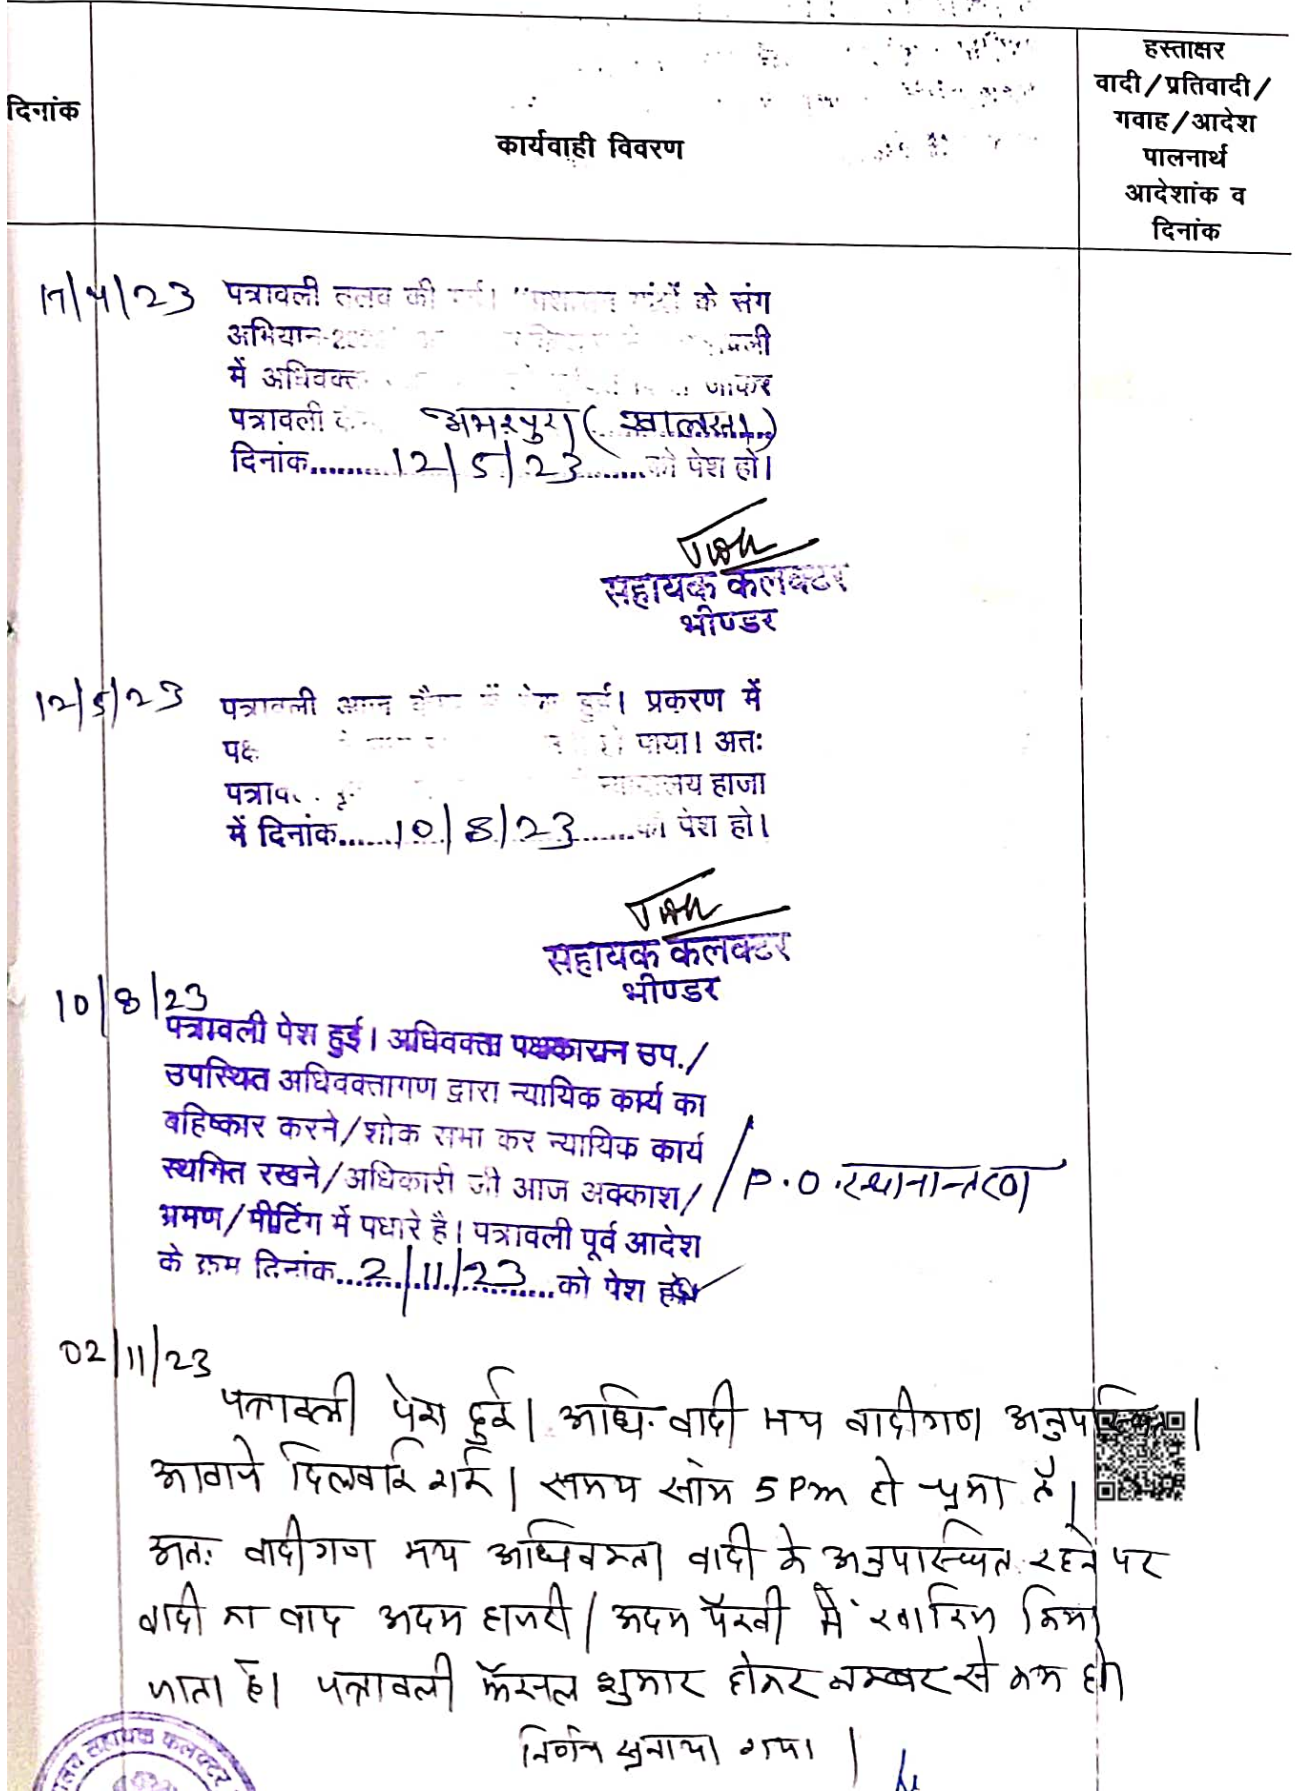 दिनांक
कार्यवाही विवरण
हस्ताक्षर
वादी/प्रतिवादी/
गवाह/आदेश
पालनार्थ
आदेशांक व
दिनांक
17/4/23 पत्रावली तलब की गई। के संग
अभियान
में अधिवक्ता जाकर
पत्रावली अमरपुरा (खालसा)
दिनांक......12/5/23......को पेश हो।
सहायक कलक्टर
भीण्डर
12/5/23 पत्रावली आज कैम्प में पेश हुई। प्रकरण में
पाया। अतः
न्यायालय हाजा
में दिनांक......10/8/23......को पेश हो।
सहायक कलक्टर
भीण्डर
10/8/23
पत्रावली पेश हुई। अधिवक्ता पक्षकारान उप./
उपस्थित अधिवक्तागण द्वारा न्यायिक कार्य का
बहिष्कार करने/शोक सभा कर न्यायिक कार्य
स्थगित रखने/अधिकारी जी आज अवकाश/ / P.O. स्थानान्तरण
भ्रमण/मीटिंग में पधारे है। पत्रावली पूर्व आदेश
के क्रम दिनांक...2/11/23...को पेश हो
02/11/23
पत्रावली पेश हुई। अधि. वादी मय वादीगण अनुपस्थित।
आवाजे दिलवाई गई। समय सांय 5 PM हो चुका है।
अतः वादीगण मय अधिवक्ता वादी के अनुपस्थित रहने पर
वादी का वाद अदम हाजरी/अदम पैरवी में खारिज किया
जाता है। पत्रावली फैसल शुमार होकर नम्बर से कम हो
निर्णय सुनाया गया।
सहायक कलक्टर